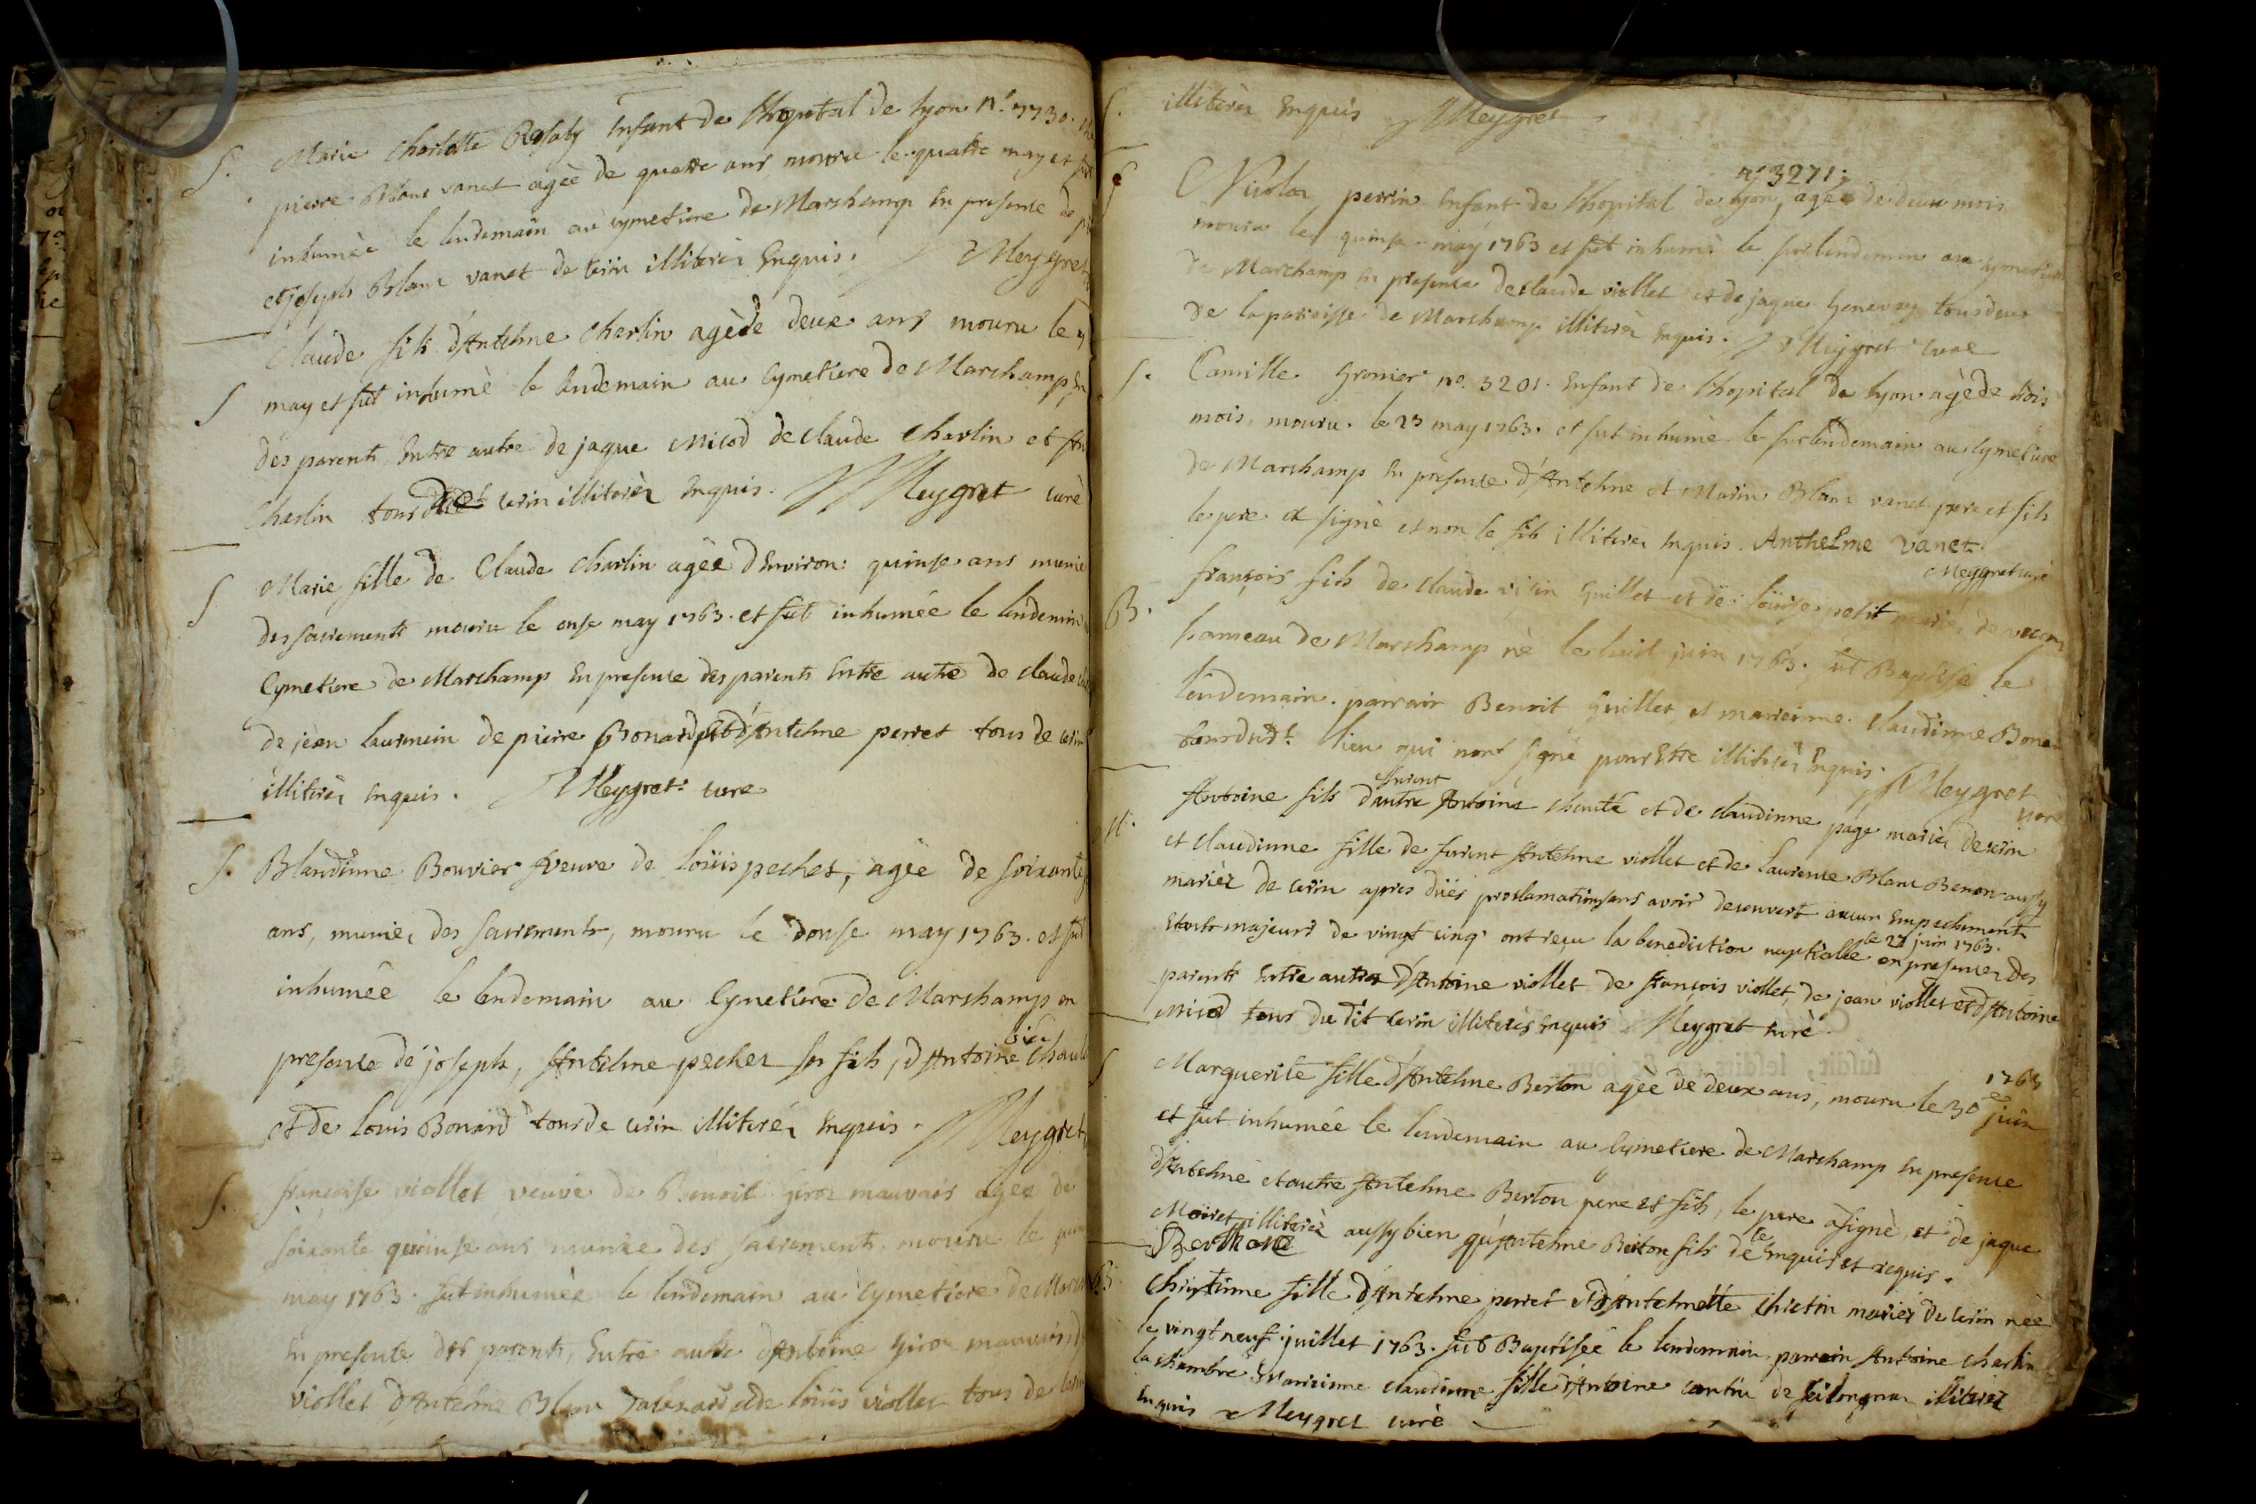 S. Marie Charlotte Rosaly Enfant de l'hopital de lyon N.o 7730.
pierre Blanc vanet agèe de quatre ans mouru le quatre may et fut
inhumèe le lendemain au cymetiere de Marchamp En presence de
et Joseph Blanc vanet de cerin illiterès Enquis. Meygret
S Claude fils d'Antelme Charlin agède deux ans mouru le
may et fut inhumè le lendemain au Cymetiere de Marchamp, En
des parents Entre autre de jaque Micod de claude Charlin et An
Charlin tous de cerin illiterès Enquis. Meygret curè
S Marie fille de Claude Charlin agèe d'Environ quinse ans munie
des sacrements mouru le onse may 1763. et fut inhumée le lendemin
Cymetiere de Marchamp En presence des parents Entre autre de claude
de jean laurencin de pierre Bonard et d'Antelme perret tous de cerin
illiterès Enquis. Meygret curé
S. Blandinne Bouvier veuve de loüis peches, agèe de soixante
ans, munie des sacrements, mouru le douse may 1763. et fut
inhumèe le lendemain au Cymetiere de Marchamp en
presence de joseph, Antelme peches ses fils, d'Antoine
et de louis Bonard tous de cerin illiterés Enquis. Meygret
S. francoise viollet veuve de Benoit giroz mauvais agèe de
soixante quinse ans munie des sacrements mouru le
may 1763. fut inhumèe le lendemain au Cymetiere de
En presence des parents, Entre autre d'Antoine giroz mauvais
viollet d'Antelme Blanc et de loüis viollet tous de cerin
illiterès Enquis Meygret
n.o 3271
S Nicolas perrin Enfant de l'hopital de lyon, agée de deux mois
mouru le quinse may 1763 et fut inhumè le surlendemin au cymetiere
de Marchamp En presence de claude viollet et de jaque Genevay tous deux
de la paroisse de Marchamp illiterès Enquis. Meygret curé
S. Camille Gronier no. 3201. Enfant de l'hopital de lyon agède trois
mois, mouru le 23 may 1763. et fut inhumè le surlendemain au Cymetiere
de Marchamp En presence d'Antelme et Marin Blanc vanet pere et fils
le pere a signè et non le fils illiterès Enquis. Anthelme vanet
Meygret curè
B. françois fils de claude guillet et de loüise petit mariès de
hameau de Marchamp nè le huit juin 1763. fut Baptisè le
lendemain. parrain Benoit guillet, et marienne Claudinne Bona
tous dudt. lieu qui n'ont signè pour Etre illiterès Enquis. Meygret
curè
M. Antoine fils d'autre furent Antoine et de claudinne page mariès de cerin
et claudinne fille de furent Antelme viollet et de laurence Blanc Benon aussy
mariès de cerin apres düés proclamations sans avoir decouvert aucun Empechement
Etants majeurs de vingt cinq ont reçu la benediction nuptialle le 27 juin 1763. en presence des
parents Entre autres d'Antoine viollet de françois viollet, de jean viollet et d'Antoine
Micod tous du dit cerin illiterès Enquis Meygret curè
S Marguerite fille d'Antelme Berton agèe de deux ans, mouru le 30e juin 1763
et fut inhumée le lendemain au Cymetiere de Marchamp En presence
d'Antelme et autre Antelme Berton pere et fils, le pere a signè, et de jaque
Moiret illiterès aussy bien qu'Antelme Berton fils de ce Enquis et requis.
Berthone
B. Christinne fille d'Antelme perret et d'Antelmette Chretin mariès de cerin nèe
le vingt neuf juillet 1763. fut Baptisée le lendemain parrain Antoine charlin
la chambre Marienne claudinne fille d'Antoine de illiterès
Enquis Meygret curè